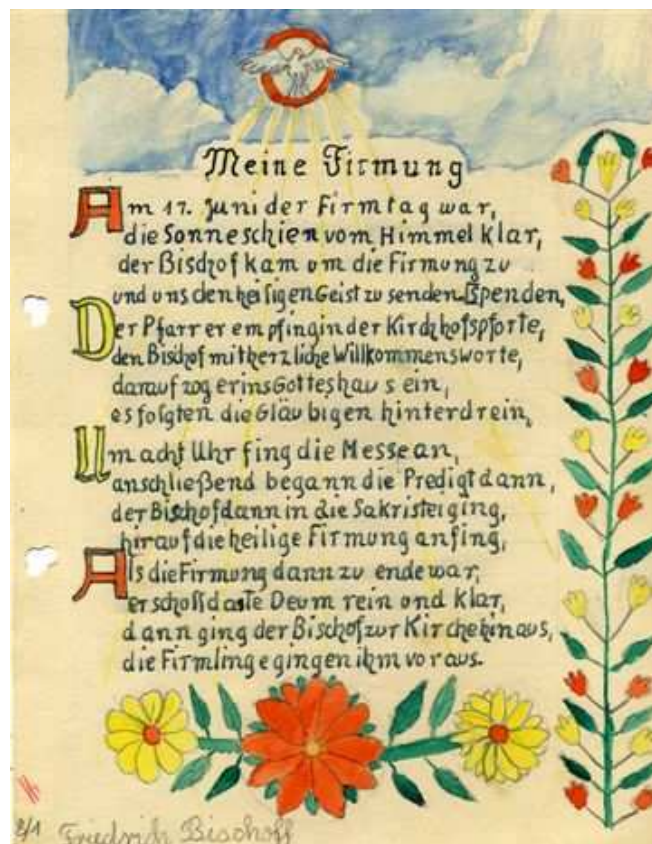 Meine Firmung
Am 17. Juni der Firmtag war,
die Sonne schien vom Himmel klar,
der Bischof kam um die Firmung zu
und uns den heiligen Geist zu senden. spenden,
Der Pfarrer empfing in der Kirchhofspforte,
den Bischof mit herzliche Willkommensworte,
darauf zog er ins Gotteshaus ein,
es folgten die Gläubigen hinterdrein,
Um acht Uhr fing die Messe an,
anschließend begann die Predigt dann,
der Bischof dann in die Sakristei ging,
hirauf die heilige Firmung anfing,
Als die Firmung dann zu ende war,
erscholl das Te Deum rein und klar,
dann ging der Bischof zur Kirche hinaus,
die Firmlinge gingen ihm voraus.
2/1 Friedrich Bischoff